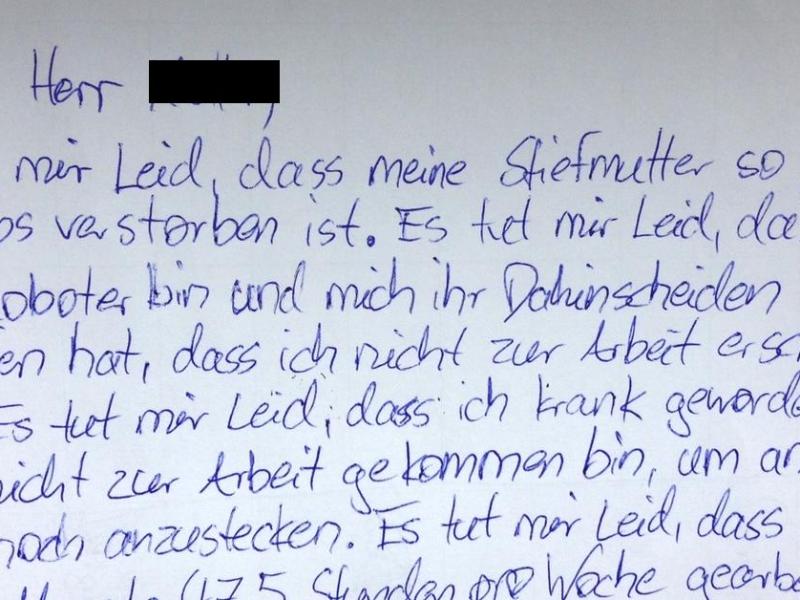 Herr
mir Leid, dass meine Stiefmutter so
os verstorben ist. Es tut mir Leid, da
oboter bin und mich ihr Dahinscheiden
en hat, dass ich nicht zur Arbeit ersc
Es tut mir Leid, dass ich krank geworde
nicht zur Arbeit gekommen bin, um an
noch anzustecken. Es tut mir Leid, dass
47,5 Stunden pro Woche gearbe